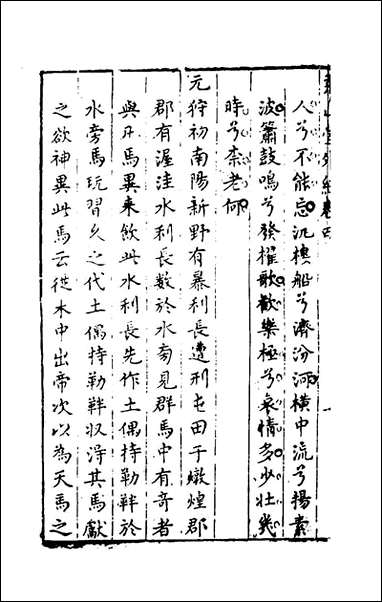 堯山堂外紀卷四
人兮不能忘汎樓船兮濟汾河橫中流兮揚素
波簫鼓鳴兮發櫂歌歡樂極兮哀情多少壯幾
時兮柰老何
元狩初南陽新野有暴利長遭刑屯田于燉煌郡
郡有渥洼水利長數於水旁見群馬中有奇者
與凡馬異來飲此水利長先作土偶持勒絆於
水旁馬玩習久之代土偶持勒絆收得其馬獻
之欲神異此馬云從水中出帝次以為天馬之